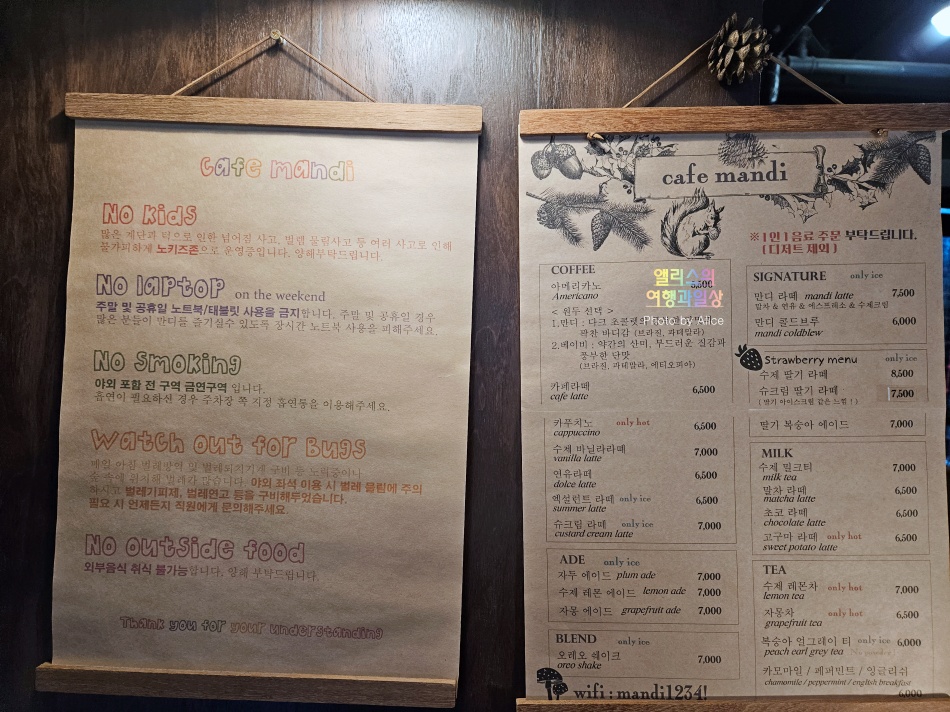 cafe mandi
No kids
많은 계단과 턱으로 인한 넘어짐 사고, 벌렙 물림사고 등 여러 사고로 인해
불가피하게 노키즈존으로 운영중입니다. 양해부탁드립니다.
No laptop on the weekend
주말 및 공휴일 노트북/태블릿 사용을 금지합니다. 주말 및 공휴일 경우
많은 분들이 만디를 즐기실수 있도록 장시간 노트북 사용을 피해주세요.
No smoking
야외 포함 전 구역 금연구역 입니다.
흡연이 필요하신 경우 주차장 쪽 지정 흡연통을 이용해주세요.
Watch out for Bugs
매일 아침 벌레방역 및 벌레퇴치기계 구비 등 노력중이나
숲 속에 위치해 벌레가 많습니다. 야외 좌석 이용 시 벌레 물림에 주의
하시고 벌레기피제, 벌레연고 등을 구비해두었습니다.
필요 시 언제든지 직원에게 문의해주세요.
No outside food
외부음식 취식 불가능합니다. 양해 부탁드립니다.
Thank you for your understanding
cafe mandi
※ 1인 1음료 주문 부탁드립니다.
( 디저트 제외 )
COFFEE
아메리카노
Americano
< 원두 선택 >
1.만디 : 다크 초콜렛의
꽉찬 바디감 (브라질, 과테말라)
2.베이비 : 약간의 산미, 부드러운 질감과
풍부한 단맛
(브라질, 과테말라, 에티오피아)
카페라떼 6,500
cafe latte
카푸치노 only hot 6,500
cappuccino
수제 바닐라라떼 7,000
vanilla latte
연유라떼 6,500
dolce latte
엑설런트 라떼 only ice 6,500
summer latte
슈크림 라떼 only ice 7,000
custard cream latte
ADE only ice
자두 에이드 plum ade 7,000
수제 레몬 에이드 lemon ade 7,000
자몽 에이드 grapefruit ade 7,000
BLEND only ice
오레오 쉐이크 7,000
oreo shake
wifi : mandi1234!
SIGNATURE only ice
만디 라떼 mandi latte 7,500
말차 & 연유 & 에스프레소 & 수제크림
만디 콜드브루 6,000
mandi coldblew
Strawberry menu only ice
수제 딸기 라떼 8,500
슈크림 딸기 라떼 7,500
( 딸기 아이스크림 같은 느낌 ! )
딸기 복숭아 에이드 7,000
MILK
수제 밀크티 7,000
milk tea
말차 라떼 6,500
matcha latte
초코 라떼 6,500
chocolate latte
고구마 라떼 only hot 6,500
sweet potato latte
TEA
수제 레몬차 only hot 7,000
lemon tea
자몽차 only hot 6,500
grapefruit tea
복숭아 얼그레이 티 only ice 6,000
peach earl grey tea
카모마일 / 페퍼민트 / 잉글리쉬
chamomile / peppermint / english breakfast
6,000
앨리스의
여행과일상
Photo by Alice